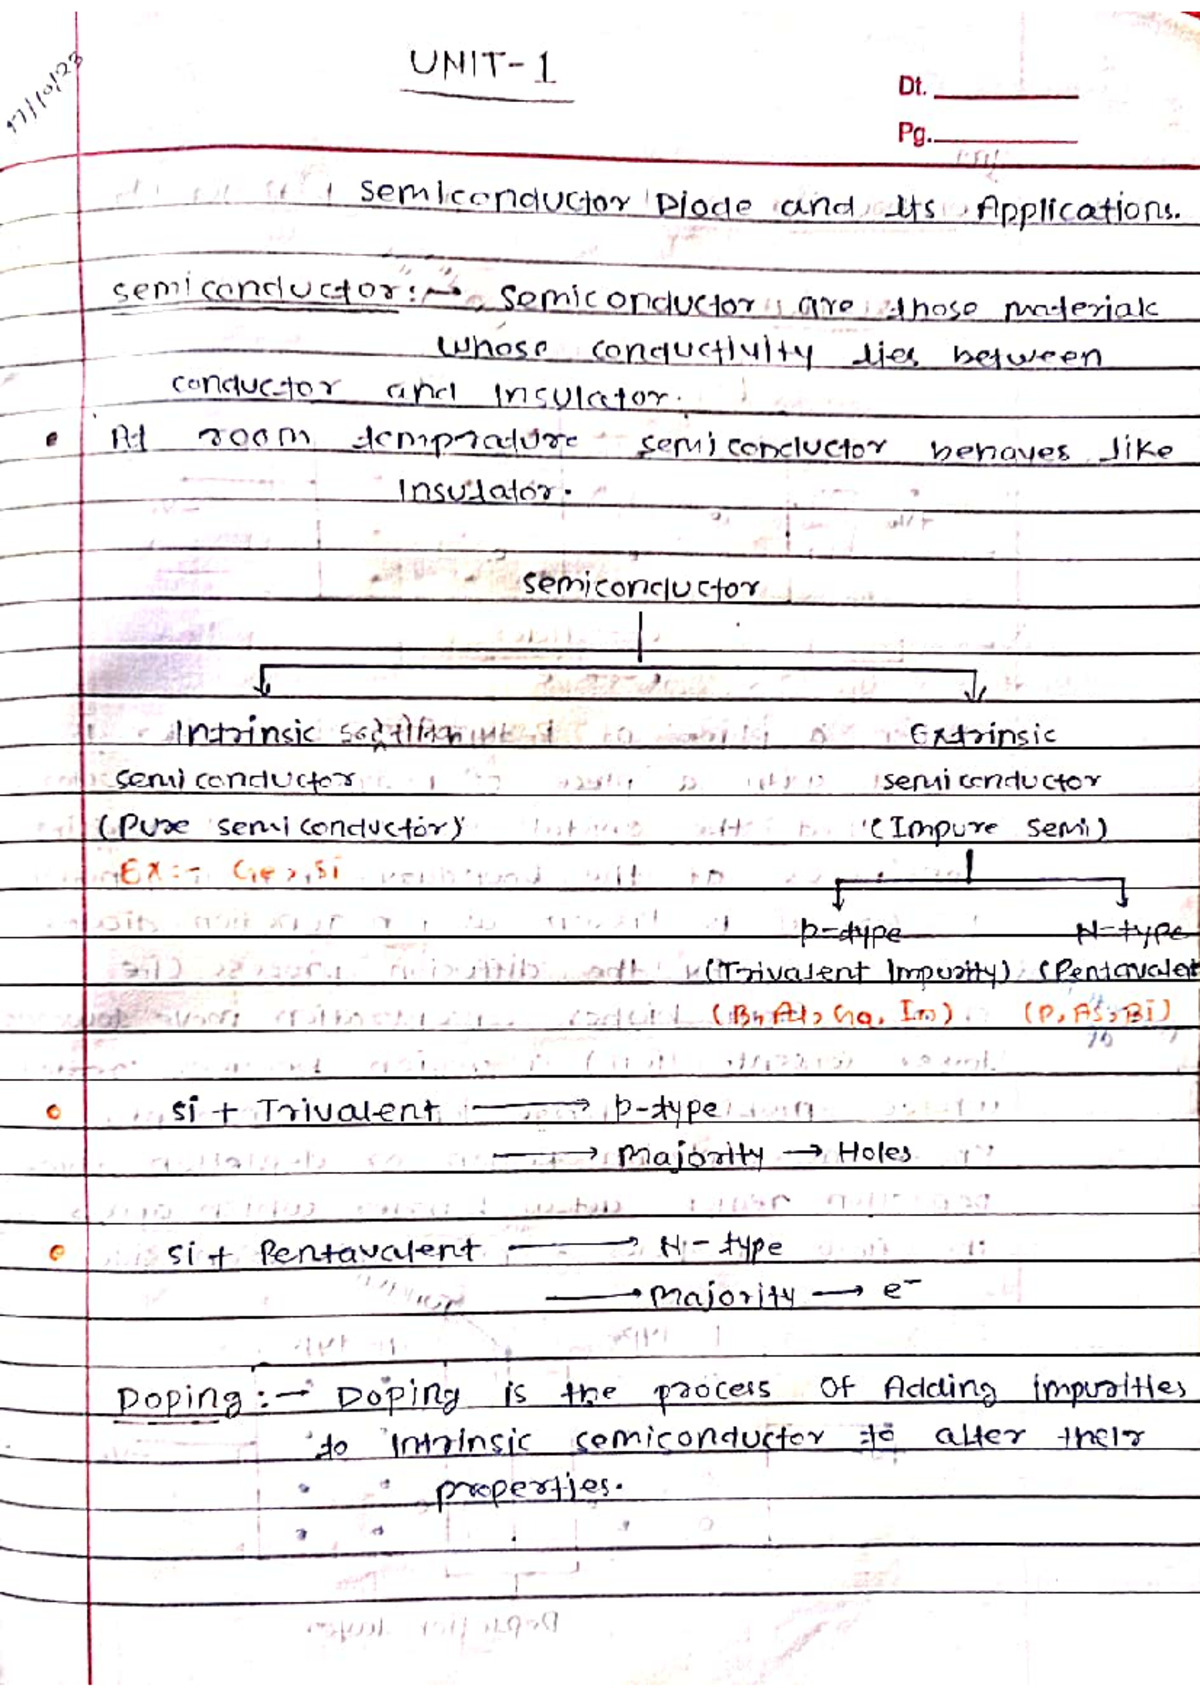 17/10/23
UNIT-1
Dt.
Pg.
semiconductor Diode and Its Applications.
semiconductor:→ semiconductor are those materials
whose conductivity lies between
conductor and Insulator.
• At room temprature semiconductor behaves like
Insulator.
semiconductor
Intrinsic Extrinsic
semiconductor semiconductor
(Pure semiconductor) (Impure semi)
Ex:- Ge, Si
p-type N-type
(Trivalent Impurity) (Pentavalent
(B, Al, Ga, In) (P, As, Bi)
si + Trivalent → p-type
→ Majority → Holes
si + Pentavalent → N-type
→ Majority → e⁻
Doping:→ Doping is the process Of Adding impurities
to Intrinsic semiconductor to alter their
properties.